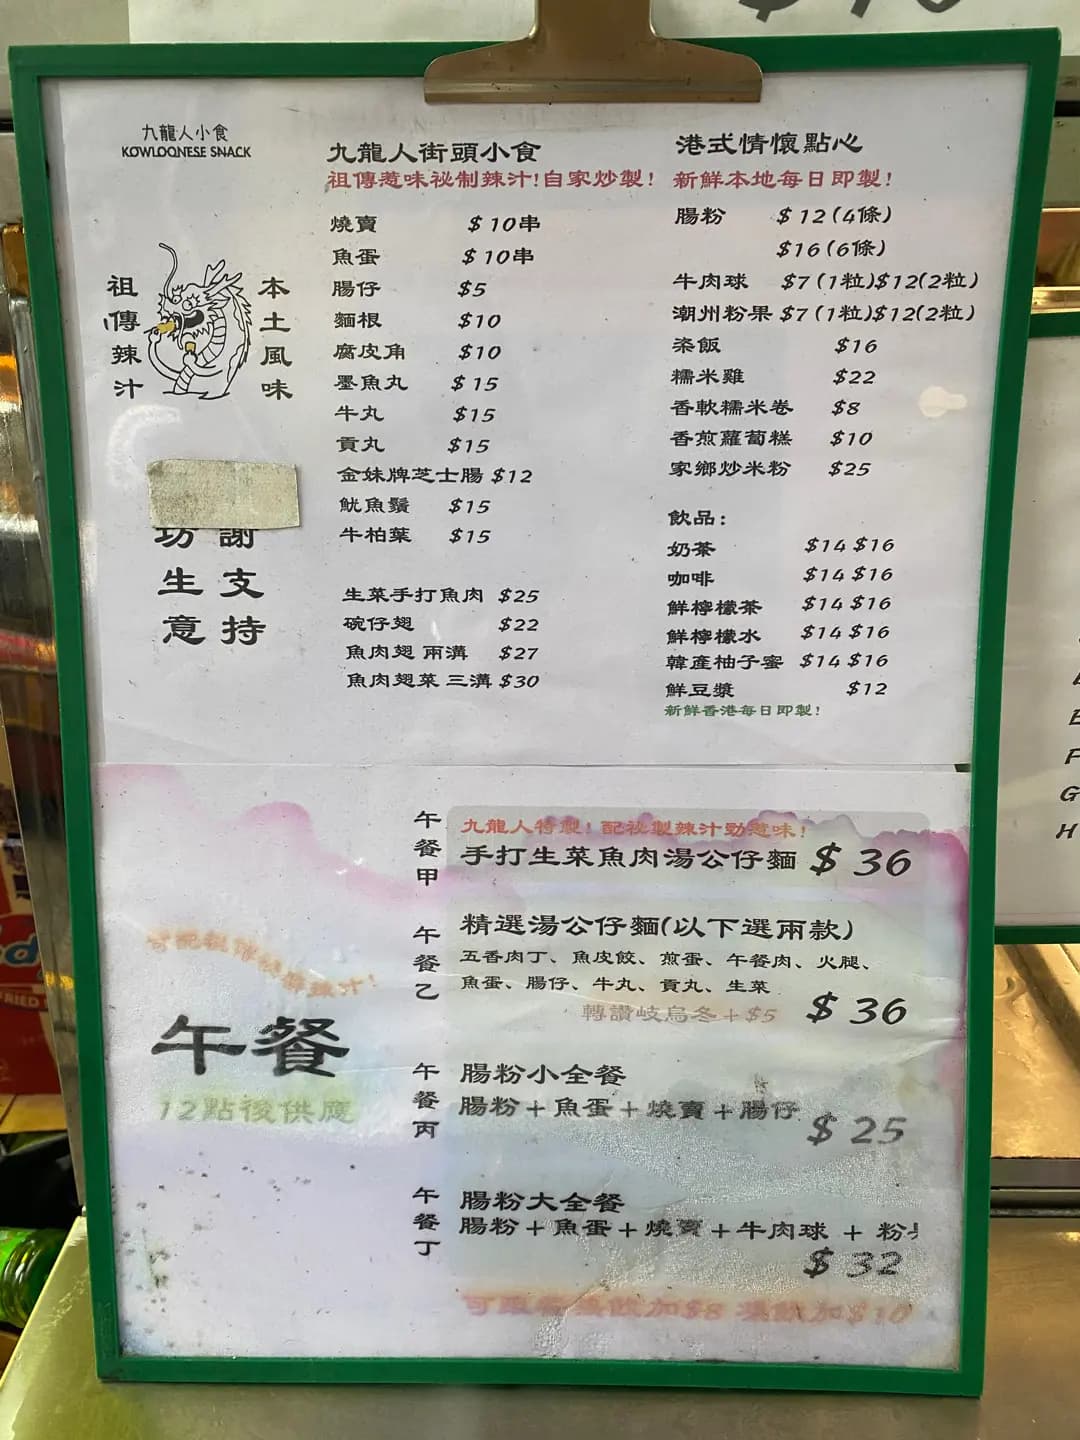 九龍人小食
KOWLOONESE SNACK
祖傳辣汁
本土風味
謝
支
持
坊
生
意
九龍人街頭小食
祖傳惹味祕制辣汁!自家炒製!
燒賣 $10串
魚蛋 $10串
腸仔 $5
麵根 $10
腐皮角 $10
墨魚丸 $15
牛丸 $15
貢丸 $15
金妹牌芝士腸 $12
魷魚鬚 $15
牛柏葉 $15
生菜手打魚肉 $25
碗仔翅 $22
魚肉翅 兩溝 $27
魚肉翅菜 三溝 $30
港式情懷點心
新鮮本地每日即製!
腸粉 $12(4條)
$16(6條)
牛肉球 $7(1粒)$12(2粒)
潮州粉果 $7(1粒)$12(2粒)
染飯 $16
糯米雞 $22
香軟糯米卷 $8
香煎蘿蔔糕 $10
家鄉炒米粉 $25
飲品:
奶茶 $14 $16
咖啡 $14 $16
鮮檸檬茶 $14 $16
鮮檸檬水 $14 $16
韓產柚子蜜 $14 $16
鮮豆漿 $12
新鮮香港每日即製!
午餐
12點後供應
午餐甲
九龍人特製! 配祕製辣汁勁惹味!
手打生菜魚肉湯公仔麵 $36
午餐乙
精選湯公仔麵(以下選兩款)
五香肉丁、魚皮餃、煎蛋、午餐肉、火腿、
魚蛋、腸仔、牛丸、貢丸、生菜
轉讚岐烏冬+$5 $36
午餐丙
腸粉小全餐
腸粉+魚蛋+燒賣+腸仔
$25
午餐丁
腸粉大全餐
腸粉+魚蛋+燒賣+牛肉球 + 粉
$32
飲加$8 凍飲加$10